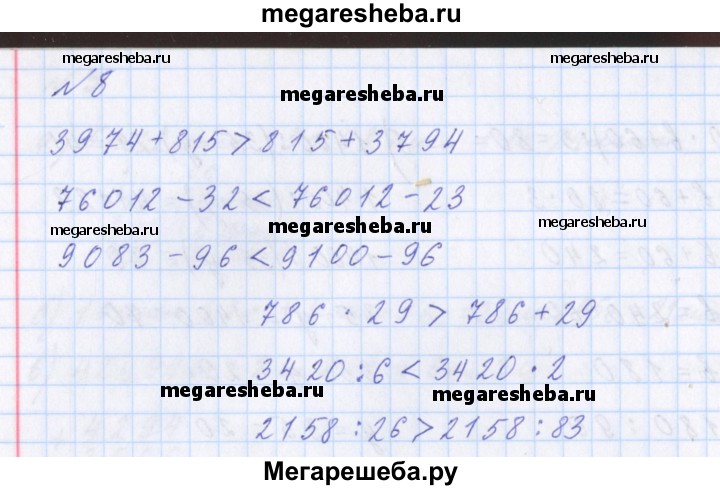 megaresheba.ru
megaresheba.ru megaresheba.ru
№8
megaresheba.ru
3974+815>815+3794
76012-32<76012-23
megaresheba.ru
megaresheba.ru
9083-96<9100-96
786·29>786+29
3420:6<3420·2
megaresheba.ru megaresheba.ru
2158:26>2158:83
Мегарешеба.ру